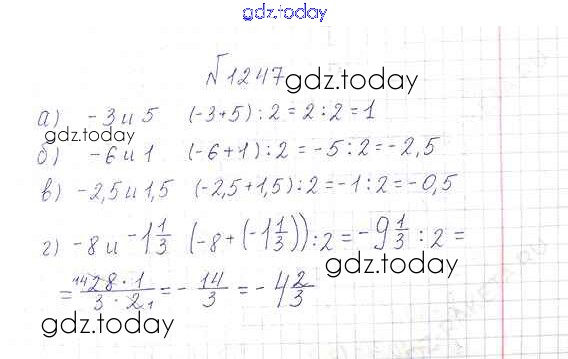 gdz.today
№1247 gdz.today
а) -3 и 5 (-3+5) : 2 = 2 : 2 = 1
gdz.today
б) -6 и 1 (-6+1) : 2 = -5 : 2 = -2,5
в) -2,5 и 1,5 (-2,5+1,5) : 2 = -1 : 2 = -0,5
г) -8 и -1 1/3 (-8 + (-1 1/3)) : 2 = -9 1/3 : 2 =
gdz.today
= 14 28 · 1 / 3 · 2 1 = - 14/3 = -4 2/3
gdz.today